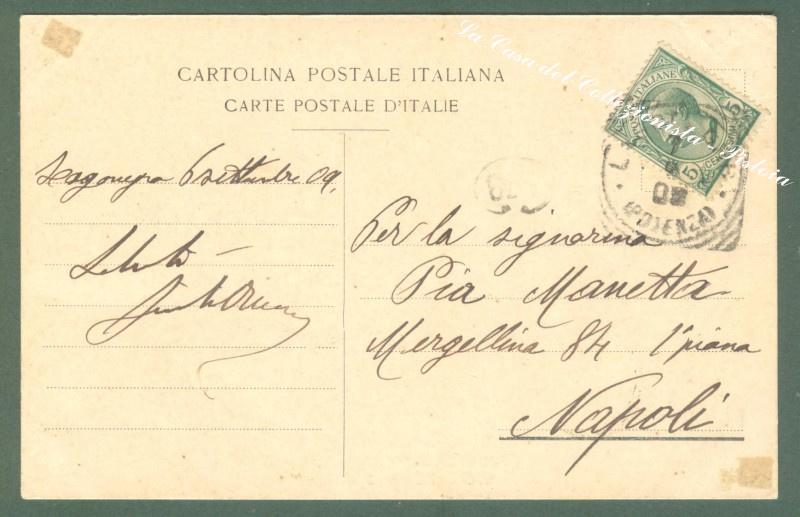 La Casa del Collezionista - Pistoia
CARTOLINA POSTALE ITALIANA
CARTE POSTALE D'ITALIE
POSTE ITALIANE
CENTESIMI 5
5
(POTENZA)
Lagonegro 6 settembre 09.
Saluti
Per la signorina
Pia Manetta
Mergellina 84 1° piano
Napoli